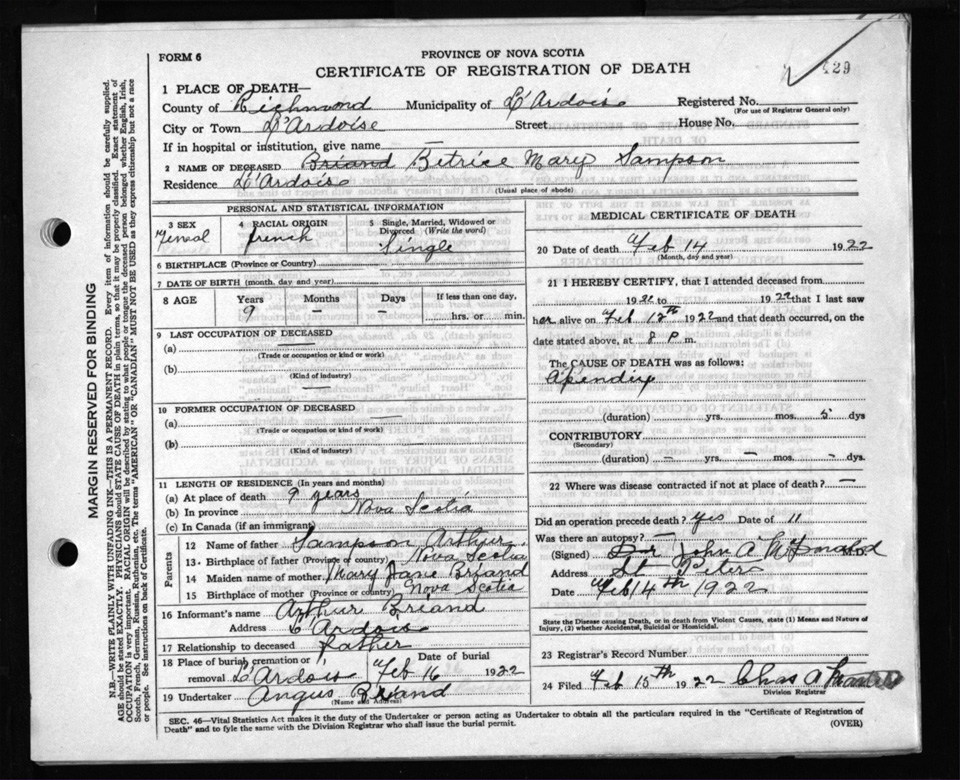 FORM 6
PROVINCE OF NOVA SCOTIA
CERTIFICATE OF REGISTRATION OF DEATH
429
1 PLACE OF DEATH—
County of Richmond Municipality of L'Ardois Registered No.
(For use of Registrar General only)
City or Town L'Ardoise Street House No.
If in hospital or institution, give name
2 NAME OF DECEASED Briand Betrice Mary Sampson
Residence L'Ardois
(Usual place of abode)
PERSONAL AND STATISTICAL INFORMATION
3 SEX Femal
4 RACIAL ORIGIN french
5 Single, Married, Widowed or Divorced (Write the word) Single
6 BIRTHPLACE (Province or Country)
7 DATE OF BIRTH (month, day and year)
8 AGE Years 9 Months – Days – If less than one day, hrs. or min.
9 LAST OCCUPATION OF DECEASED
(a)
(Trade or occupation or kind or work)
(b)
(Kind of industry)
10 FORMER OCCUPATION OF DECEASED
(a)
(Trade or occupation or kind of work)
(b)
(Kind of industry)
11 LENGTH OF RESIDENCE (In years and months)
(a) At place of death 9 years
(b) In province Nova Scotia
(c) In Canada (if an immigrant)
Parents
12 Name of father Sampson Arthur
13 Birthplace of father (Province or country) Nova Scotia
14 Maiden name of mother Mary Jane Briand
15 Birthplace of mother (Province or country) Nova Scotia
16 Informant's name Arthur Briand
Address L'Ardois
17 Relationship to deceased father
18 Place of burial, cremation or removal L'Ardois Date of burial Feb 16 1922
19 Undertaker Angus Briand
(Name and Address)
MEDICAL CERTIFICATE OF DEATH
20 Date of death Feb 14 1922
(Month, day and year)
21 I HEREBY CERTIFY, that I attended deceased from
19 to 1922 that I last saw
her alive on Feb 12th 1922 and that death occurred, on
date stated above, at 8 P m.
The CAUSE OF DEATH was as follows:
Apendix
(duration) yrs. mos. 5 dys
CONTRIBUTORY
(Secondary)
(duration) – yrs. – mos. – dys
22 Where was disease contracted if not at place of death? –
Did an operation precede death? yes Date of 11
Was there an autopsy? –
(Signed) Dr John A
Address St Peters
Date Feb 14th 1922
State the Disease causing Death, or in death from Violent Causes, state (1) Means and Nature of
Injury, (2) whether Accidental, Suicidal or Homicidal.
23 Registrar's Record Number
24 Filed Feb 15th 1922 Chas A
Division Registrar
SEC. 46—Vital Statistics Act makes it the duty of the Undertaker or person acting as Undertaker to obtain all the particulars required in the "Certificate of Registration of
Death" and to fyle the same with the Division Registrar who shall issue the burial permit.
(OVER)
MARGIN RESERVED FOR BINDING
N.B.—WRITE PLAINLY WITH UNFADING INK—THIS IS A PERMANENT RECORD. Every item of information should be carefully supplied.
AGE should be stated EXACTLY. PHYSICIANS should STATE CAUSE OF DEATH in plain terms, so that it may be properly classified. Exact statement of
OCCUPATION is very important. RACIAL ORIGIN will be described by stating to what people or tongue the deceased person belonged whether English, Irish,
Scotch, French, German, Russian, Ruthenian, etc. The terms "AMERICAN" OR "CANADIAN" MUST NOT BE USED as they express citizenship but not a race
or people. See instructions on back of Certificate.